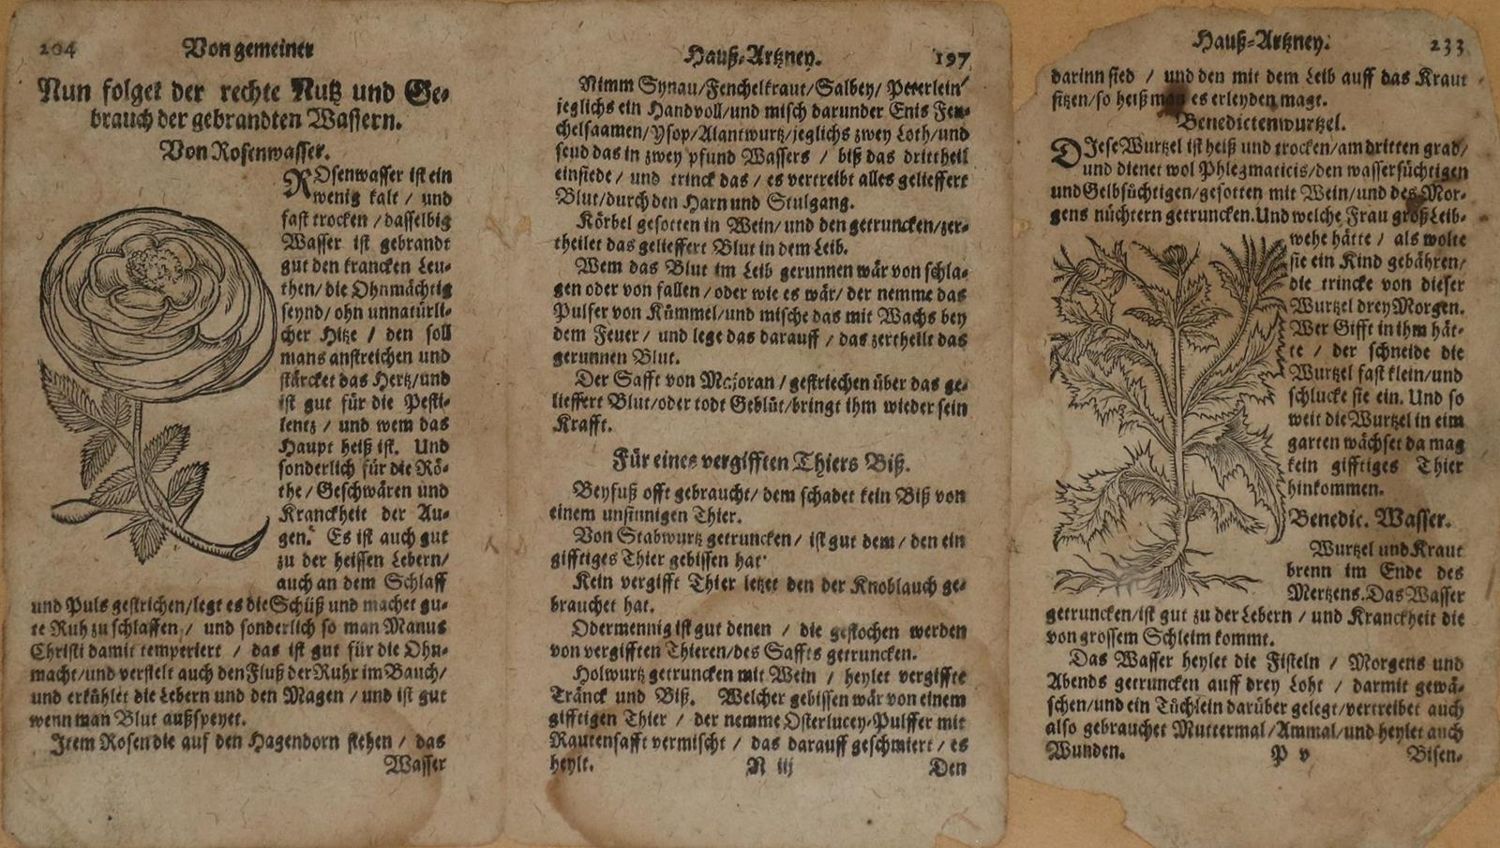 204 Von gemeiner
Nun folget der rechte Nutz und Ge-
brauch der gebrandten Wassern.
Von Rosenwasser.
ROsenwasser ist ein
wenig kalt / und
fast trocken / dasselbig
Wasser ist gebrandt
gut den krancken Leu-
then/ die Ohnmächtig
seynd/ ohn unnatürli-
cher Hitze / den soll
mans anstreichen und
stärcket das Hertz/und
ist gut für die Pesti-
lentz / und wem das
Haupt heiß ist. Und
sonderlich für die Rö-
the / Geschwären und
Kranckheit der Au-
gen. Es ist auch gut
zu der heissen Lebern/
auch an dem Schlaff
und Puls gestrichen/legt es die Schüß und machet gu-
te Ruh zu schlaffen / und sonderlich so man Manus
Christi damit temperiert / das ist gut für die Ohn-
macht/und verstelt auch den Fluß der Ruhr im Bauch/
und erkühlet die Lebern und den Magen / und ist gut
wenn man Blut außspeyet.
Item Rosen die auf den Hagendorn stehen / das
Wasser
Hauß-Artzney. 197
Nimm Synau/Fenchelkraut/Salbey/ Peterlein/
jeglichs ein Handvoll/und misch darunder Enis Fen-
chelsaamen/Ysop/Alantwurtz/jeglichs zwey Loth/und
seud das in zwey pfund Wassers / biß das drittheil
einsiede / und trinck das / es vertreibt alles geliefert
Blut/durch den Harn und Stulgang.
Körbel gesotten in Wein/ und den getruncken/zer-
theilet das geliefert Blut in dem Leib.
Wem das Blut im Leib gerunnen wär von schla-
gen oder von fallen / oder wie es wär/ der nemme das
Pulfer von Kümmel/und mische das mit Wachs bey
dem Feuer / und lege das darauff / das zertheilt das
gerunnen Blut.
Der Safft von Majoran / gestriechen über das ge-
lieffert Blut/oder todt Geblüt/bringt ihm wieder sein
Krafft.
Für eines vergifften Thiers Biß.
Beyfuß offt gebraucht/ dem schadet kein Biß von
einem unsinnigen Thier.
Von Stabwurtz getruncken / ist gut dem / den ein
gifftiges Thier gebissen hat
Kein vergifft Thier letzet den der Knoblauch ge-
brauchet hat.
Odermennig ist gut denen / die gestochen werden
von vergifften Thieren/des Saffts getruncken.
Holwurtz getruncken mit Wein / heylet vergiffte
Tränck und Biß. Welcher gebissen wär von einem
gifftigen Thier / der nemme Osterlucey-Pulffer mit
Rautensafft vermischt / das darauff geschmiert / es
heylt. N iij Den
Hauß-Artzney. 233
darinn sied / und den mit dem Leib auff das Kraut
sitzen/so heiß man es erleyden magt.
Benedictenwurtzel.
DIese Wurtzel ist heiß und trocken/am dritten grad/
und dienet wol Phlegmaticis/den wassersüchtigen
und Gelbsüchtigen/gesotten mit Wein/und des Mor-
gens nüchtern getruncken.Und welche Frau groß Leib-
wehe hätte / als wolte
sie ein Kind gebähren/
die trincke von dieser
Wurtzel drey Morgen.
Wer Gifft in ihm hät-
te / der schneide die
Wurtzel fast klein/und
schlucke sie ein. Und so
weit die Wurtzel in eim
garten wächset da mag
kein gifftiges Thier
hinkommen.
Benedic. Wasser.
Wurtzel und Kraut
brenn im Ende des
Mertzens.Das Wasser
getruncken/ist gut zu der Lebern / und Kranckheit die
von grossem Schleim kommt.
Das Wasser heylet die Fisteln / Morgens und
Abends getruncken auff drey Loht / darmit gewä-
schen/und ein Tüchlein darüber gelegt/vertreibet auch
also gebrauchet Muttermal/Ammal/und heylet auch
Wunden. P v Bisen-